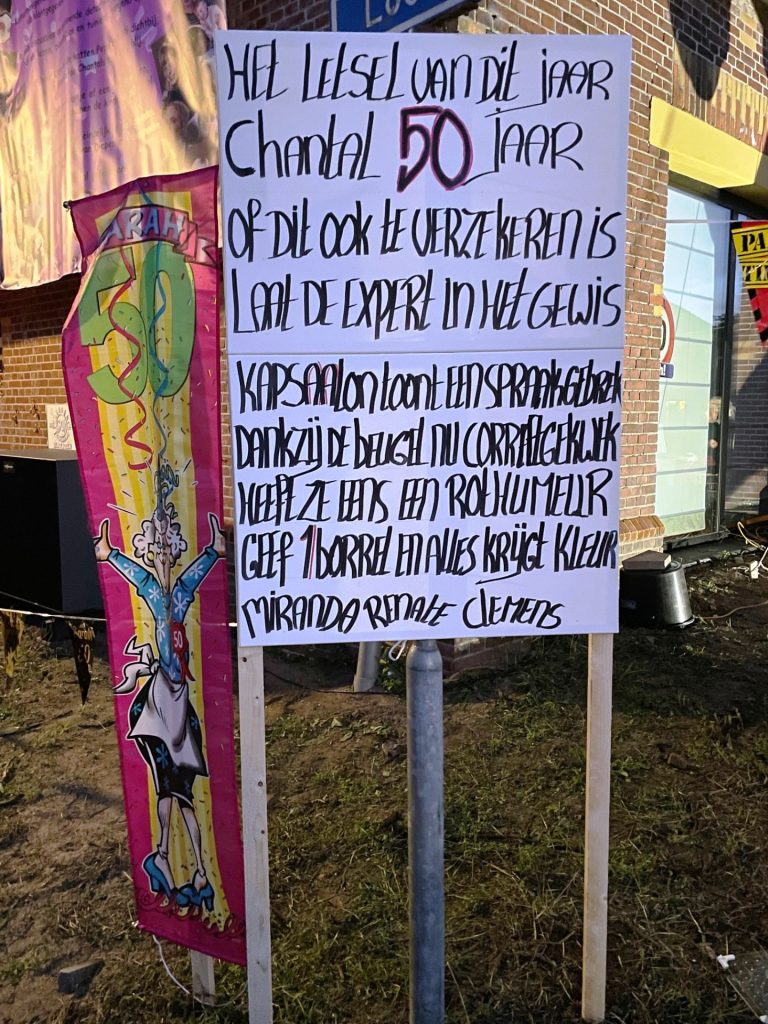 HET LETSEL VAN DIT JAAR
CHANTAL 50 JAAR
OF DIT OOK TE VERZEKEREN IS
LAAT DE EXPERT IN HET GEWIS
KAPSAALON TOONT EEN SPRAAKGEBREK
DANKZIJ DE BEUGEL NU CORREFEGEKWEK
HEEFT ZE EENS EEN ROTHUMEUR
GEEF 1 BORREL EN ALLES KRIJGT KLEUR
MIRANDA RENATE CLEMENS
50
50
Chantal
PA